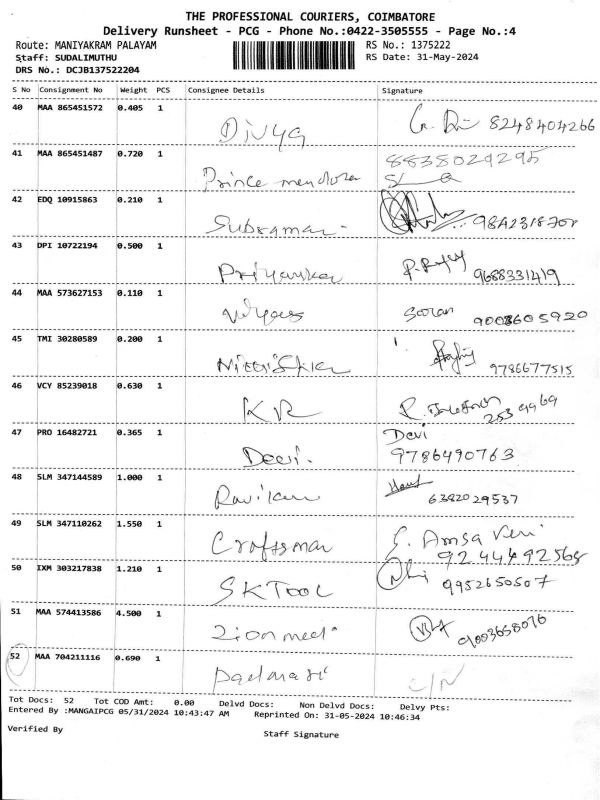 THE PROFESSIONAL COURIERS, COIMBATORE
Delivery Runsheet - PCG - Phone No.:0422-3505555 - Page No.:4
Route: MANIYAKRAM PALAYAM RS No.: 1375222
Staff: SUDALIMUTHU RS Date: 31-May-2024
DRS No.: DCJB137522204
S No Consignment No Weight PCS Consignee Details Signature
40 MAA 865451572 0.405 1 Divya 8248404266
41 MAA 865451487 0.720 1 Prince mendoza 8838029295
42 EDQ 10915863 0.210 1 Subramani
43 DPI 10722194 0.500 1 Priyanka 9688331419
44 MAA 573627153 0.110 1 Saran 9003605920
45 TMI 30280589 0.200 1 9786677515
46 VCY 85239018 0.630 1 KR 253 9969
47 PRO 16482721 0.365 1 Deevi. Devi
9786490763
48 SLM 347144589 1.000 1 Ravikum 6382029537
49 SLM 347110262 1.550 1 Craftsman E. Amsa Veni
9244492565
50 IXM 303217838 1.210 1 SKTOOL 9952650507
51 MAA 574413586 4.500 1 Zion medi 9003658076
52 MAA 704211116 0.690 1 Padmavi C/N
Tot Docs: 52 Tot COD Amt: 0.00 Delvd Docs: Non Delvd Docs: Delvy Pts:
Entered By :MANGAIPCG 05/31/2024 10:43:47 AM Reprinted On: 31-05-2024 10:46:34
Verified By Staff Signature